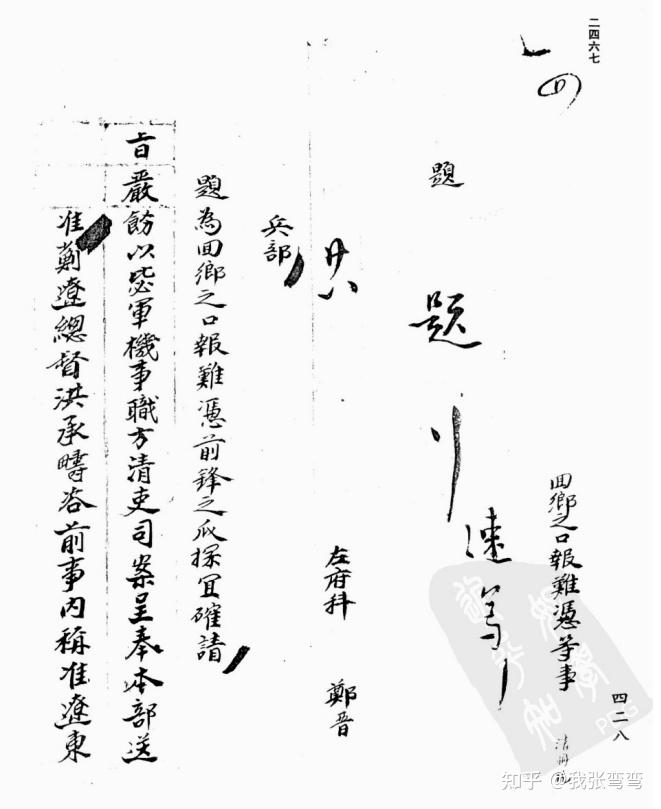 二四六七
回鄉之口報難憑等事
四二八
題
題
行
速
左府科 鄭晋
兵部
題為回鄉之口報難憑前鋒之瓜探宜確請
旨嚴飭以毖軍機事職方清吏司案呈奉本部送
准薊遼總督洪承疇咨前事內稱准遼東
知乎 @我张弯弯